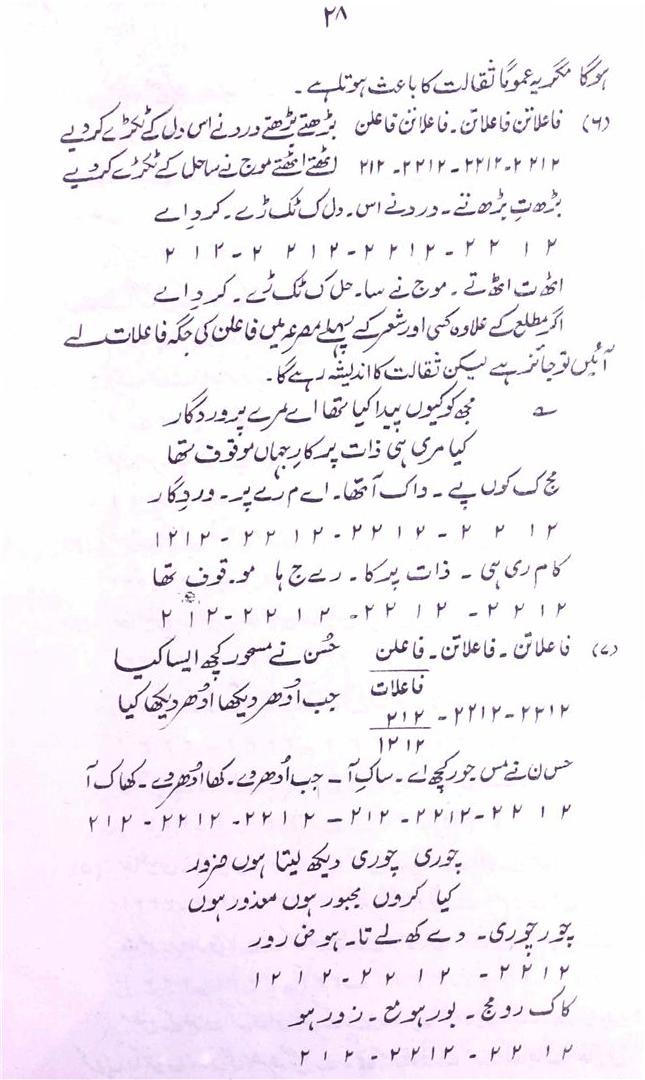 ۲۸
ہوگا مگر یہ عموماً ثقالت کا باعث ہوتا ہے ۔
(۶) فاعلاتن فاعلاتن ۔ فاعلاتن فاعلن بڑھتے بڑھتے درد نے اس دل کے ٹکڑے کر دیے
۲۲۱۲-۲۲۱۲-۲۲۱۲-۲۱۲ اٹھتے اٹھتے موج نے ساحل کے ٹکڑے کر دیے
بڑھ تِ بڑھ تے ۔ درد نے اس ۔ دل ک ٹک ڑے ۔ کر دِ اے
۲ ۱ ۲ ۲ - ۲ ۱ ۲ ۲ - ۲ ۱ ۲ ۲ - ۲ ۱ ۲
اٹھ ت اٹھ تے ۔ موج نے سا ۔ حل ک ٹک ڑے ۔ کر دِ اے
اگر مطلع کے علاوہ کسی اور شعر کے پہلے مصرعہ میں فاعلن کی جگہ فاعلات لے
آئیں تو جائز ہے لیکن ثقالت کا اندیشہ رہے گا۔
؎ مجھ کو کیوں پیدا کیا تھا اے مرے پروردگار
کیا مری ہی ذات پر کارِ جہاں موقوف تھا
مج ک کوں پے ۔ دا ک آ تھا ۔ اے م رے پر ۔ ور دِ گار
۲ ۱ ۲ ۲ - ۲ ۱ ۲ ۲ - ۲ ۱ ۲ ۲ - ۲ ۱ ۲ ۱
کا م ری ہی ۔ ذات پر کا ۔ رے ج ہا مو ۔ قوف تھا
۲ ۱ ۲ ۲ - ۲ ۱ ۲ ۲ - ۲ ۱ ۲ ۲ - ۲ ۱ ۲
(۷) فاعلاتن ۔ فاعلاتن ۔ فاعلن حُسن نے مسحور کچھ ایسا کیا
فاعلات
۲۲۱۲-۲۲۱۲-۲۱۲ جب اُدھر دیکھا اِدھر دیکھا کیا
۱۲۱۲
حس ن نے مس ۔ حور کچھ اے ۔ سا کِ آ ۔ جب اُدھر دے ۔ کھا اِدھر دے ۔ کھا ک آ
۲ ۱ ۲ ۲ - ۲ ۱ ۲ ۲ - ۲ ۱ ۲ - ۲ ۱ ۲ ۲ - ۲ ۱ ۲ ۲ - ۲ ۱ ۲
چوری چوری دیکھ لیتا ہوں ضرور
کیا کروں مجبور ہوں معذور ہوں
چور چوری ۔ دے کھ لے تا ۔ ہو ض رور
۲ ۱ ۲ ۲ - ۲ ۱ ۲ ۲ - ۲ ۱ ۲ ۱
کا ک رو مج ۔ بور ہو مع ۔ زور ہو
۲ ۱ ۲ ۲ - ۲ ۱ ۲ ۲ - ۲ ۱ ۲